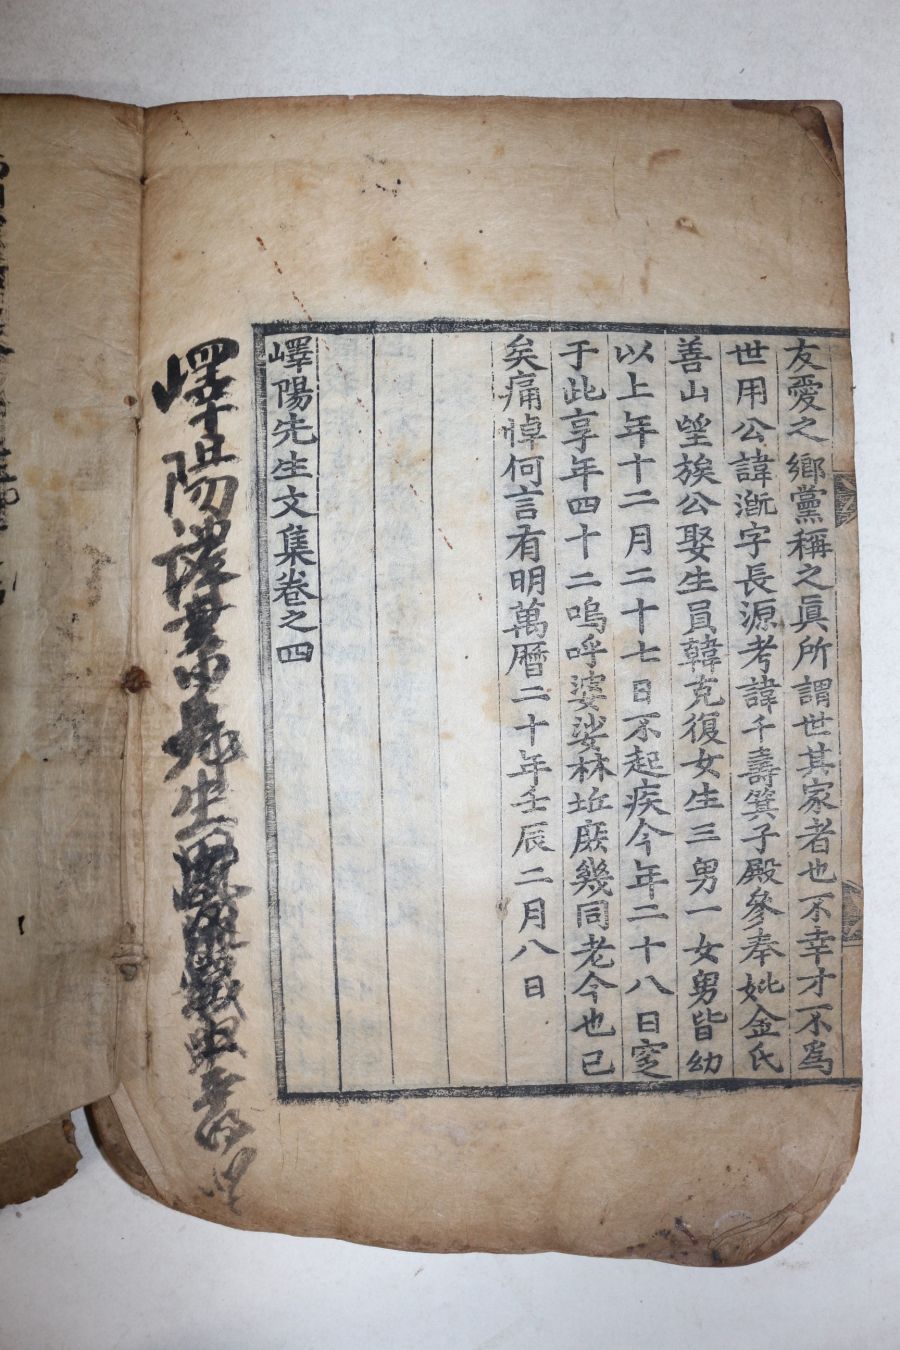 友愛之鄉黨稱之眞所謂世其家者也不幸才不爲
世用公諱漸字長源考諱千壽箕子殿參奉妣金氏
善山望族公娶生員韓克復女生三男一女男皆幼
以上年十二月二十七日不起疾今年二十八日窆
于此享年四十二嗚呼婆娑林坵庶幾同老今也已
矣痛悼何言有明萬曆二十年壬辰二月八日
嶧陽先生文集卷之四
嶧陽